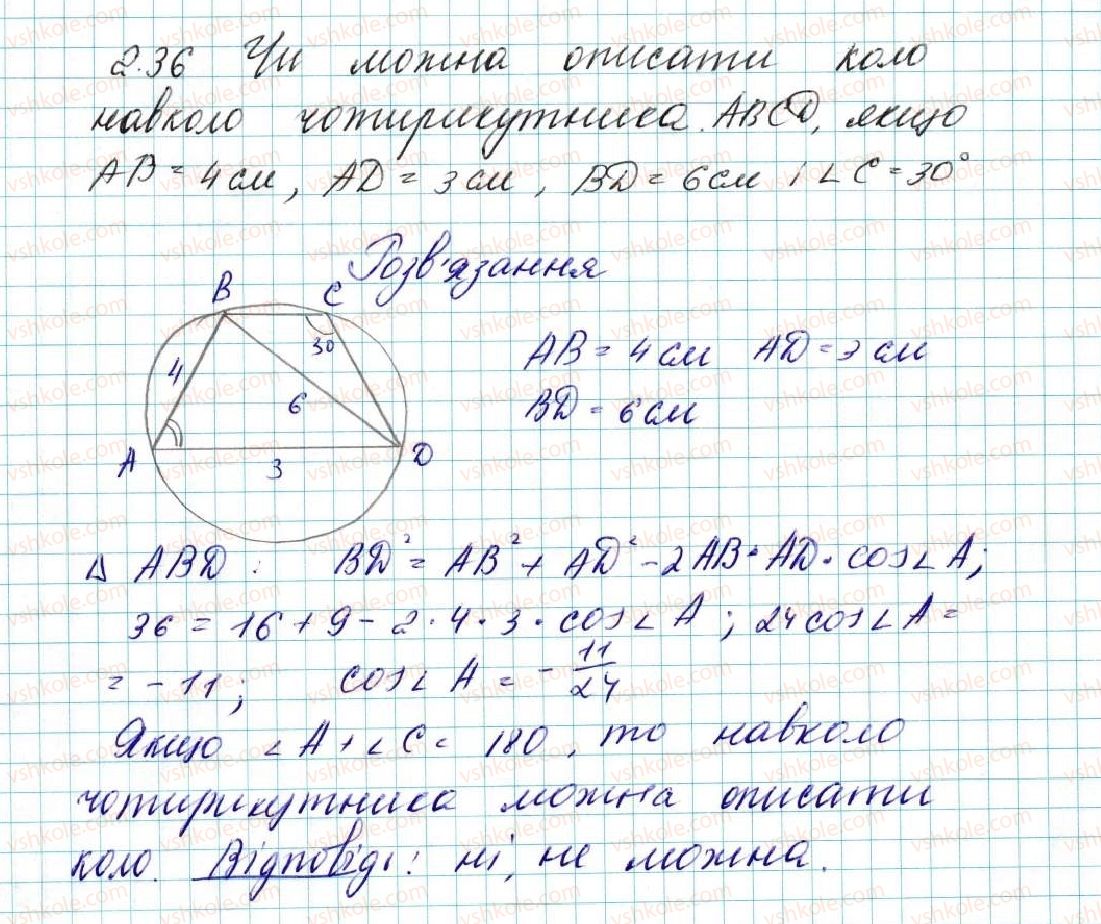 2.36 Чи можна описати коло
навколо чотирикутника ABCD, якщо
AB = 4 см, AD = 3 см, BD = 6 см і ∠C = 30°
Розв'язання
B C
30
4
6
A D
3
AB = 4 см AD = 3 см
BD = 6 см
Δ ABD : BD² = AB² + AD² - 2AB · AD · cos∠A;
36 = 16 + 9 - 2 · 4 · 3 · cos∠A ; 24cos∠A =
= - 11; cos∠A = - 11/24
Якщо ∠A + ∠C = 180, то навколо
чотирикутника можна описати
коло. Відповіді: ні, не можна.